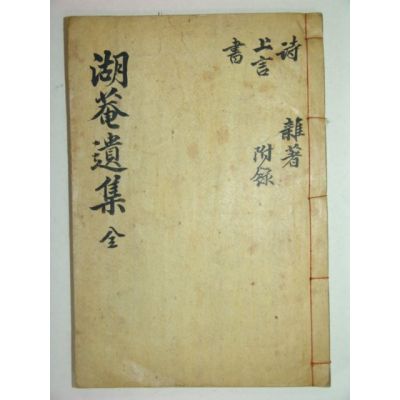 湖菴遺集 全
詩
上言
書
雜著
附錄